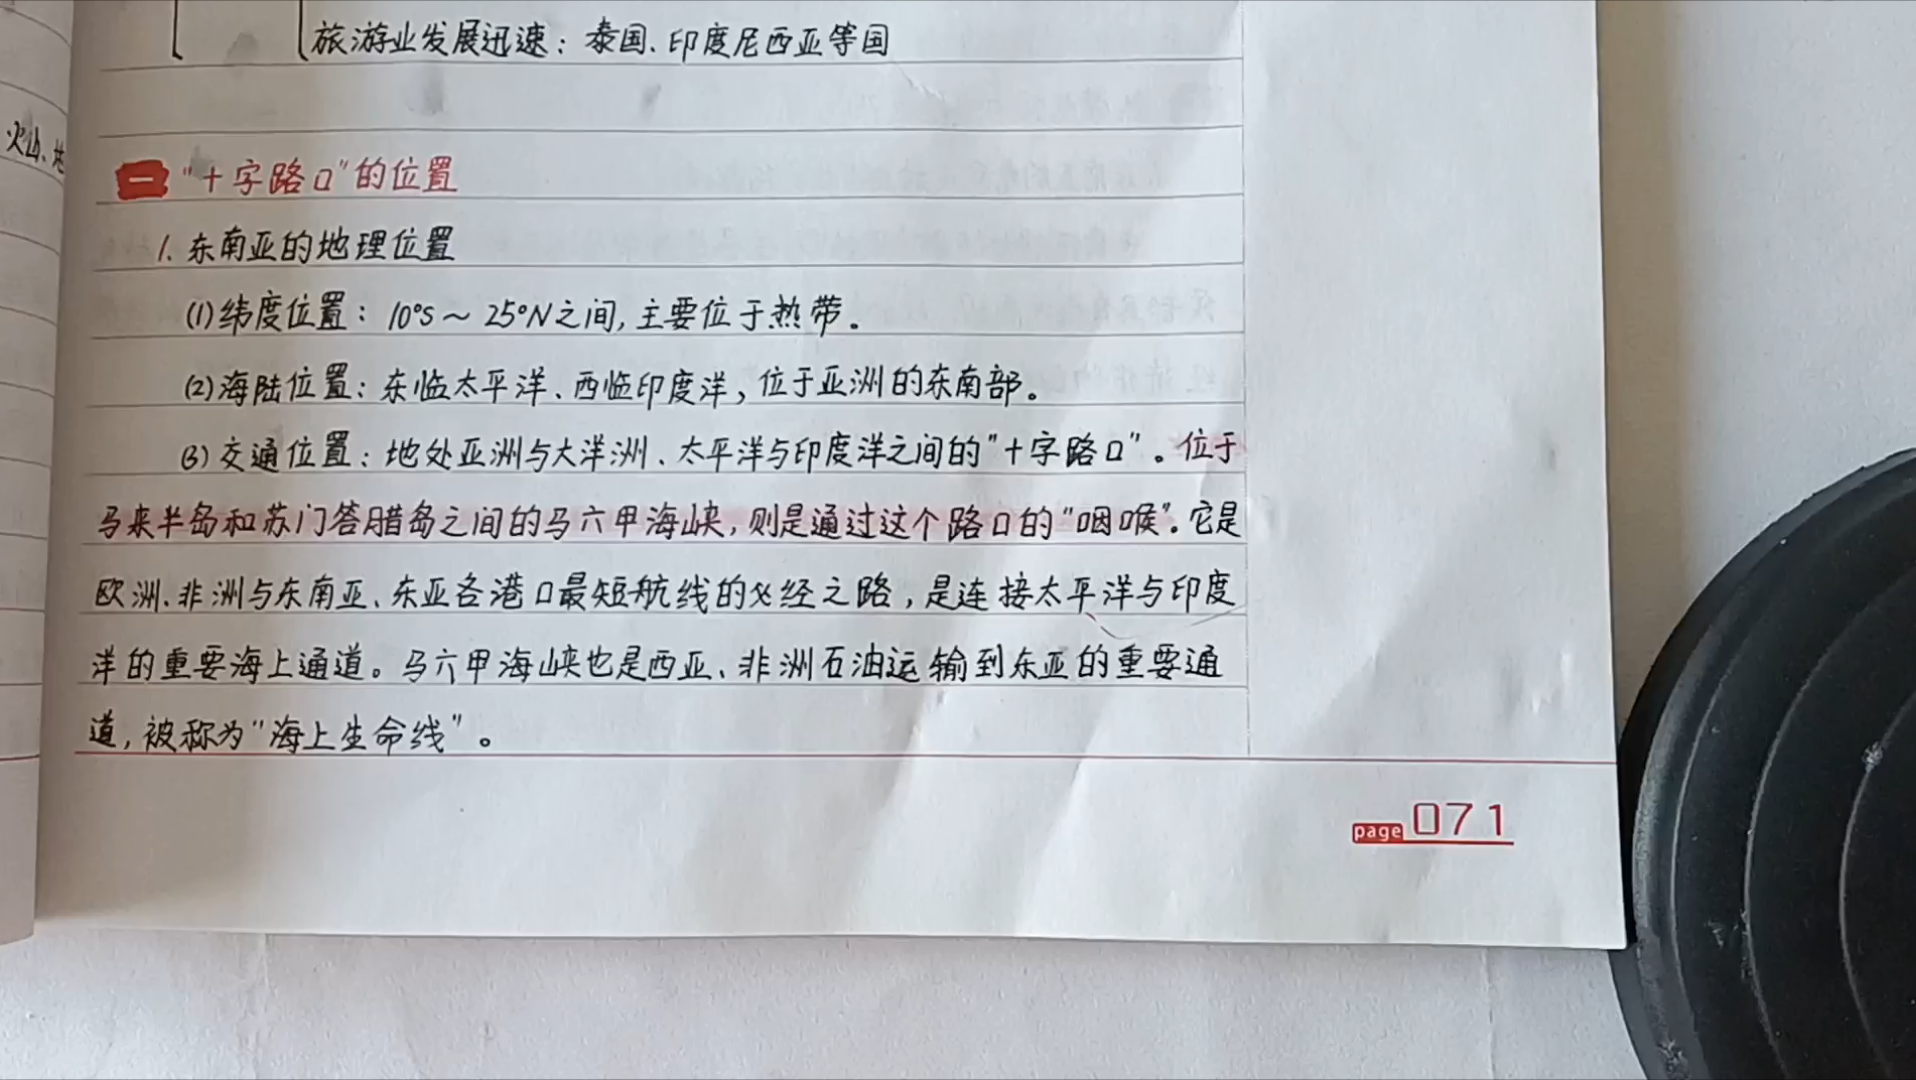 旅游业发展迅速：泰国、印度尼西亚等国
火山、地
一 “十字路口”的位置
1. 东南亚的地理位置
(1)纬度位置：10°S～25°N之间,主要位于热带。
(2)海陆位置：东临太平洋、西临印度洋,位于亚洲的东南部。
(3)交通位置：地处亚洲与大洋洲、太平洋与印度洋之间的“十字路口”。位于
马来半岛和苏门答腊岛之间的马六甲海峡,则是通过这个路口的“咽喉”。它是
欧洲、非洲与东南亚、东亚各港口最短航线的必经之路,是连接太平洋与印度
洋的重要海上通道。马六甲海峡也是西亚、非洲石油运输到东亚的重要通
道,被称为“海上生命线”。
page 071